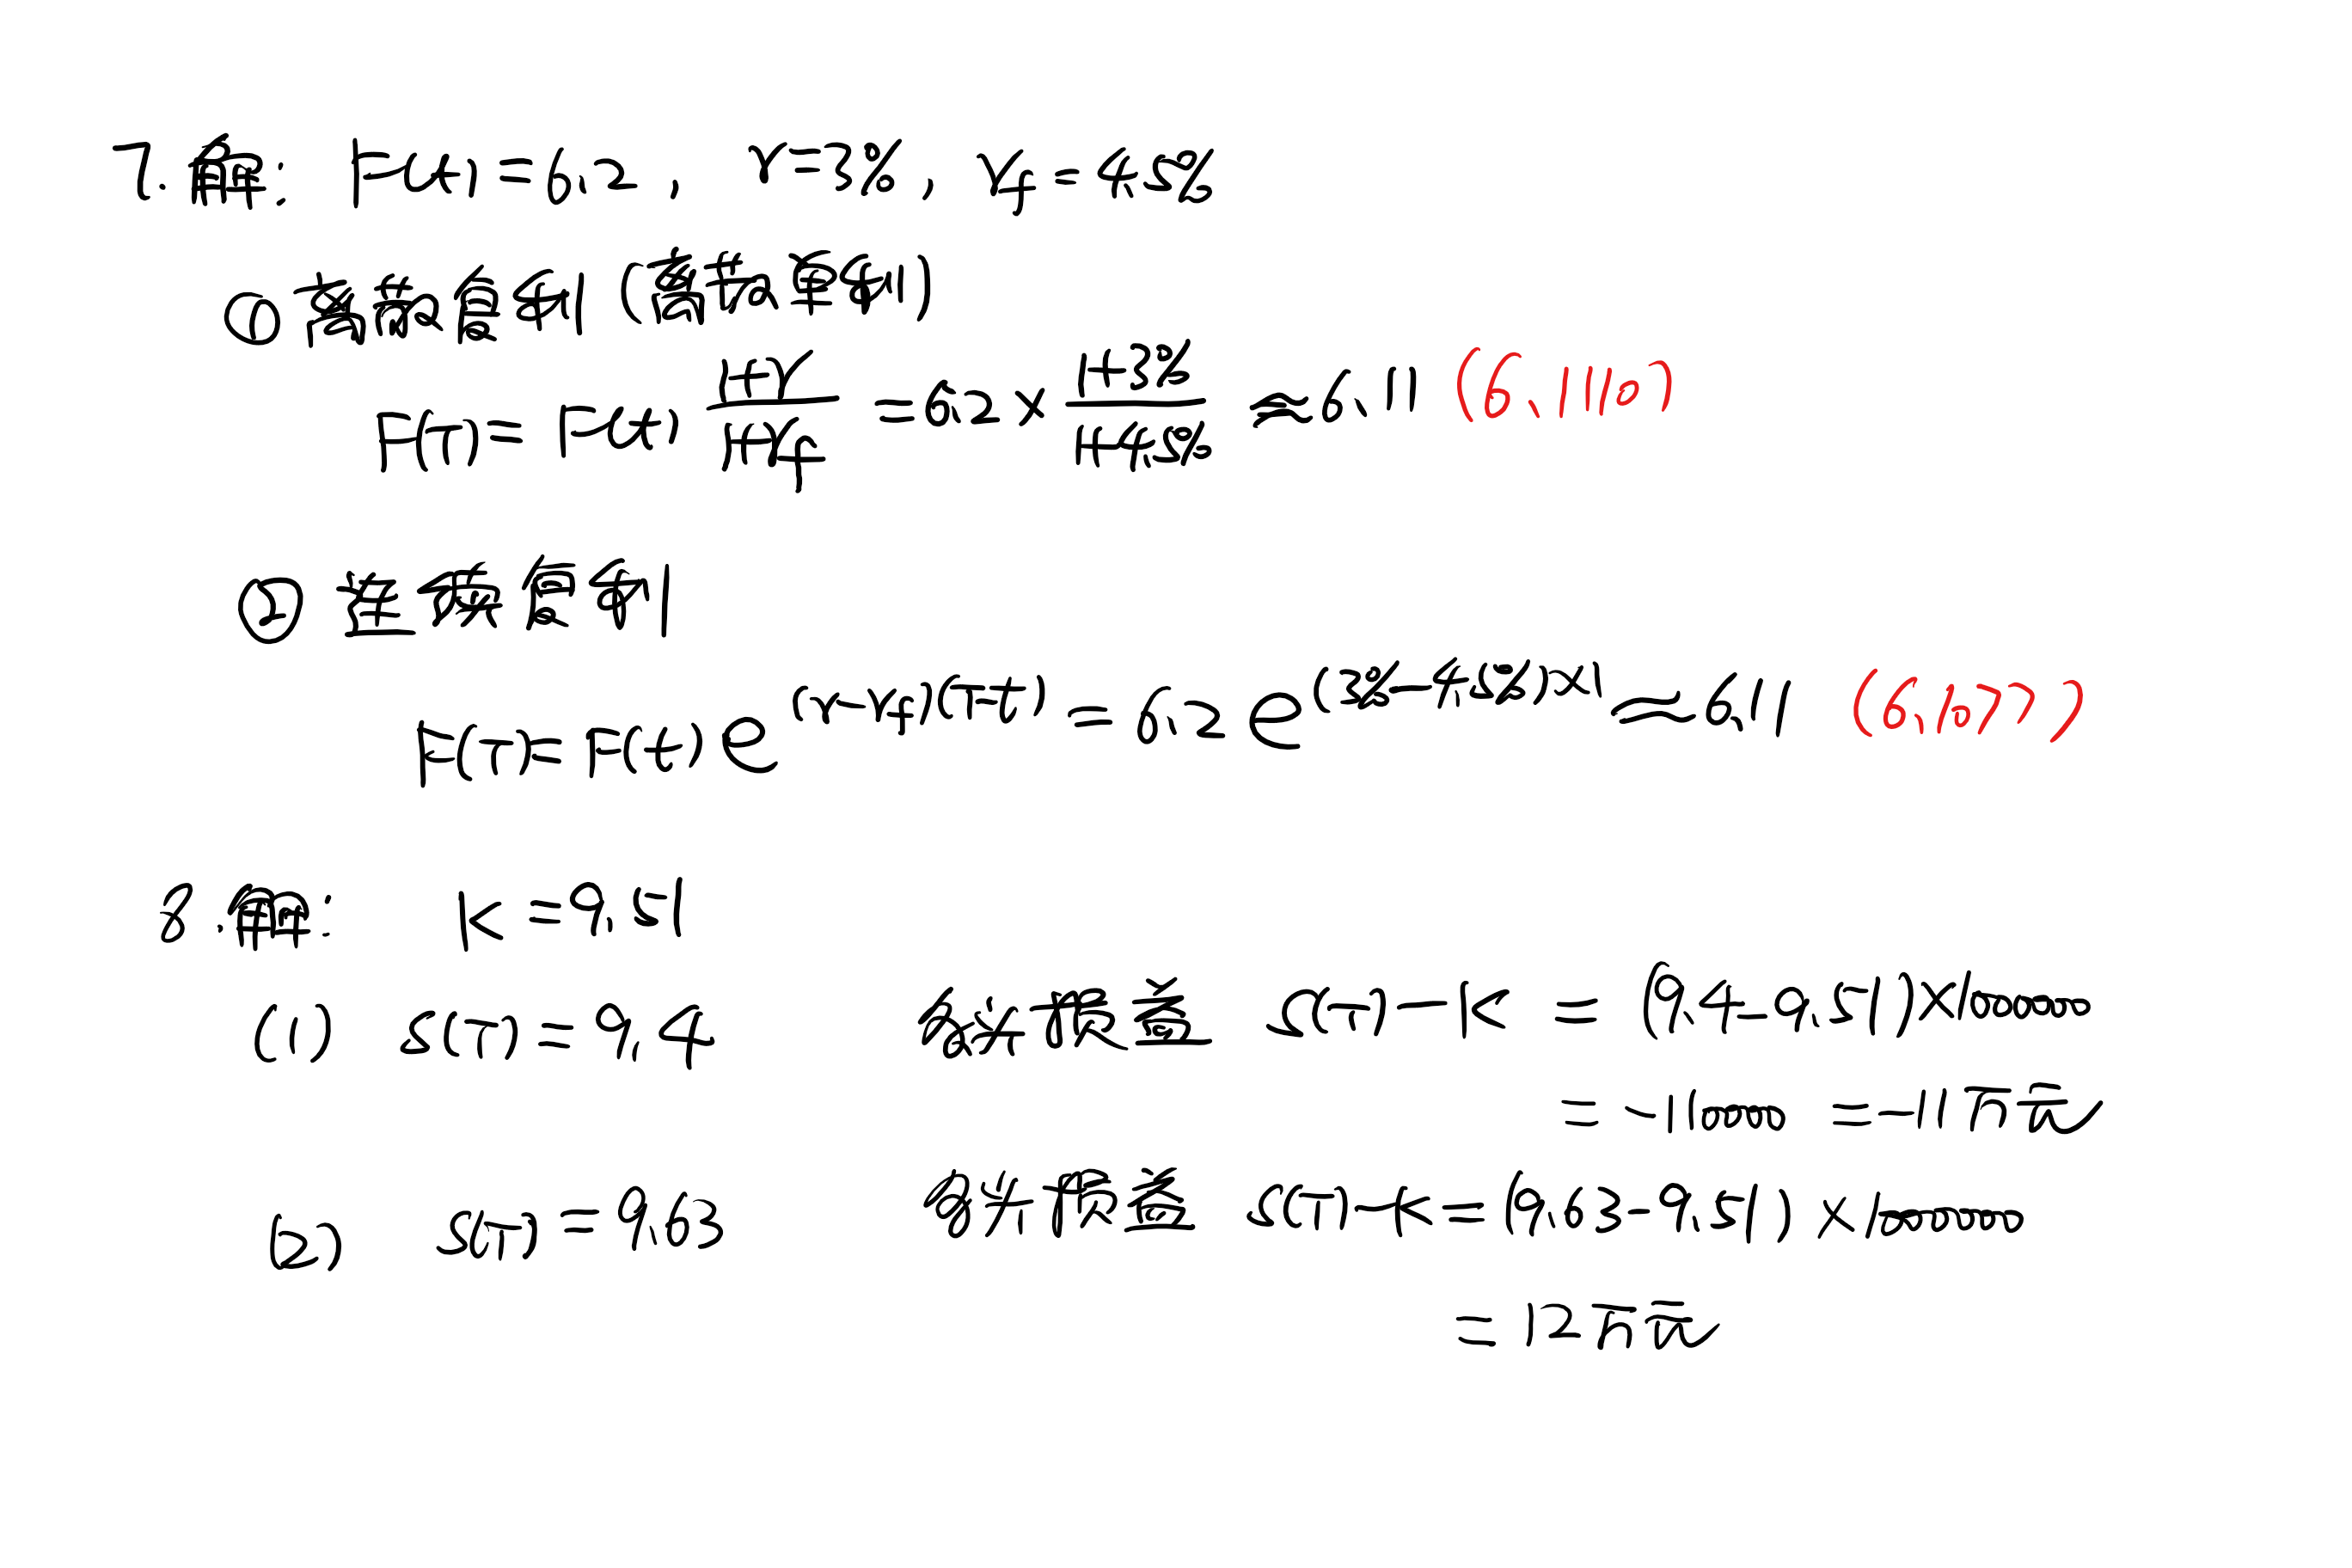 7. 解: F(t)=6.2, r=3%, rf=4.5%
① 离散复利 (离散单利)
F(T)=F(t) (1+r)/(1+rf) =6.2×(1+3%)/(1+4.5%) ≈6.11 (6.1110)
② 连续复利
F(T)=F(t)e^(r-rf)(T-t) =6.2e^(3%-4.5%)×1 ≈6.11 (6.1077)
8.解: K=9.51
(1) S(T)=9.4 多头损益 S(T)-K =(9.4-9.51)×1000000
=-110000 =-11万元
(2) S(T)=9.63 多头损益 S(T)-K=(9.63-9.51)×1000000
=12万元